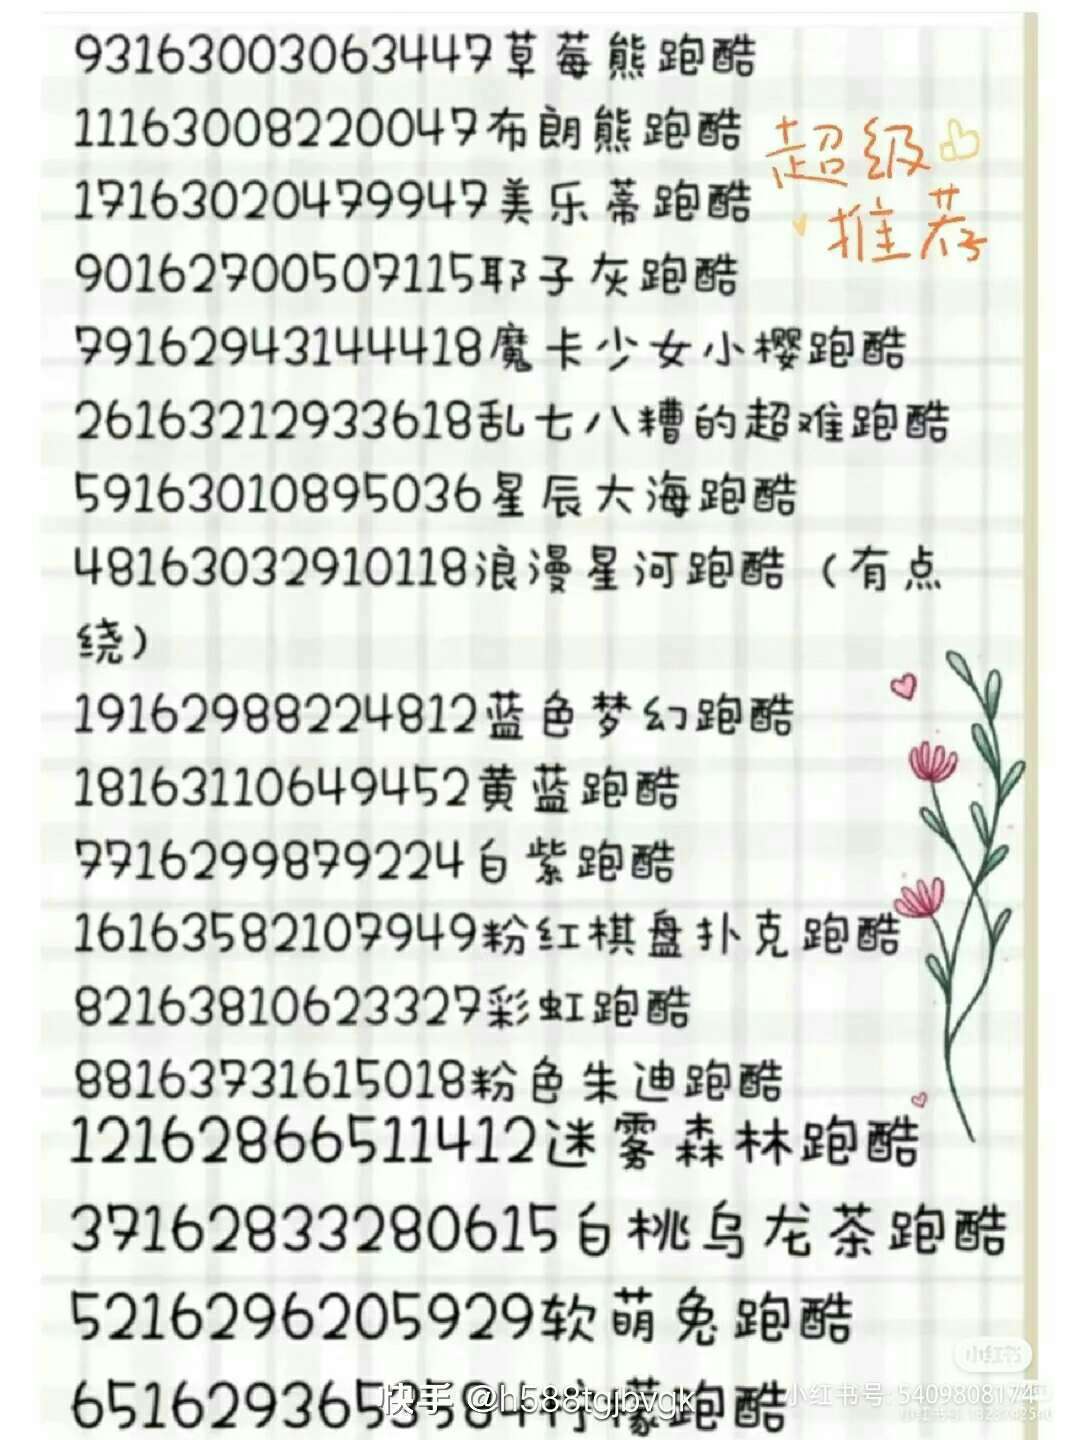 93163003063447草莓熊跑酷
111630082200​47布朗熊跑酷
超级
17163020479947美乐蒂跑酷
推荐
90162700507115耶子灰跑酷
79162943144418魔卡少女小樱跑酷
26163212933618乱七八糟的超难跑酷
59163010895036星辰大海跑酷
48163032910118浪漫星河跑酷（有点
绕）
19162988224812蓝色梦幻跑酷
18163110649452黄蓝跑酷
7716299879224白紫跑酷
16163582107949粉红棋盘扑克跑酷
82163810623327彩虹跑酷
88163731615018粉色朱迪跑酷
12162866511412迷雾森林跑酷
37162833280615白桃乌龙茶跑酷
5216296205929软萌兔跑酷
小红书
跑酷
快手 @h588tgjbvgk
小红书号: 5409808174